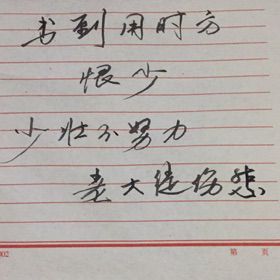 书到用时方
恨少
少壮不努力
老大徒伤悲
002 第 页